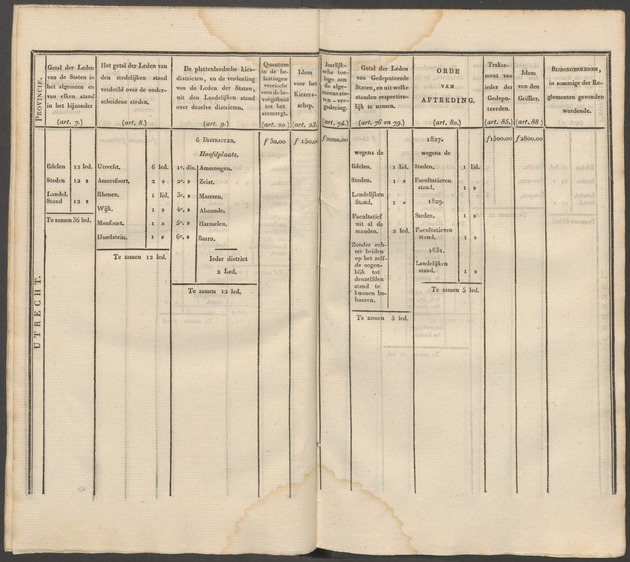 PROVINCIE.
Getal der Leden
van de Staten in
het algemeen en
van elken stand
in het bijzonder
(art. 7.)
Het getal der Leden van
den stedelijken stand
verdeeld over de onder-
scheidene steden,
(art. 8.)
De plattenlandsche kies-
districten, en de verdeeling
van de Leden der Staten,
uit den Landelijken stand
over dezelve districten,
(art. 9.)
Quantum
in de be-
lastingen
vereischt
voor de be-
voegdheid
tot het
stemregt.
(art. 20.
Idem
voor het
Kiezer-
schap.
(art. 23.
Jaarlijk-
sche toe-
lage aan
de alge-
meene sta-
ten-ver-
gadering.
(art. 74.)
Getal der Leden
van Gedeputeerde
Staten, en uit welke
standen respective-
lijk te nemen.
(art. 76 en 79.)
ORDE
VAN
AFTREDING.
(art. 80.)
Trakte-
ment van
ieder der
Gedepu-
teerden.
(art. 85.)
Idem
van den
Griffier.
(art. 88
BIJZONDERHEDEN,
in sommige der Re-
glementen gevonden
wordende.
UTRECHT.
Edelen 12 led.
Steden 12 »
Landel.
Stand 12 »
Te zamen 36 led.
Utrecht. 6 led.
Amersfoort. 2 »
Rhenen. 1 lid.
Wijk. 1 »
Monfoort. 1 »
IJsselstein. 1 »
Te zamen 12 led.
6 DISTRICTEN.
Hoofdplaats.
1e. dis. Amerongen.
2e. » Zeist.
3e. » Maarsen.
4e. » Abcoude.
5e. » Harmelen.
6e. » Baarn.
Ieder district
2 Led.
Te zamen 12 led.
ƒ 50.00
ƒ 150.00
ƒ 2000.00
wegens de
Edelen. 1 lid.
Steden. 1 »
Landelijken
Stand. 1 »
Facultatief
uit al de
standen. 2 led.
Zonder ech-
ter beiden
op het zelf-
de oogen-
blik tot
denzelfden
stand te
kunnen be-
hooren.
Te zamen 5 led.
1827.
wegens de
Steden. 1 lid.
Facultatieven
stand. 1 »
1829.
Steden. 1 »
Facultatieven
stand. 1 »
1831.
Landelijken
stand. 1 »
Te zamen 5 led.
ƒ 1500.00
ƒ 2800.00